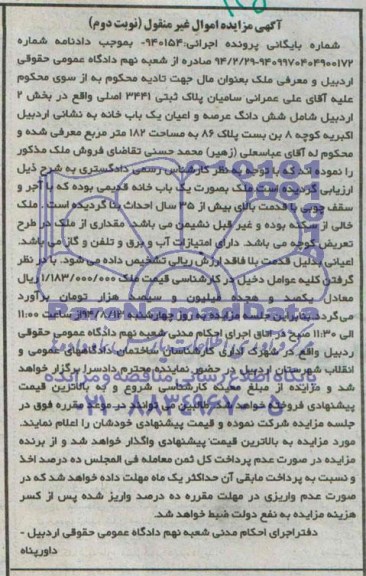 آگهی مزایده اموال غیر منقول (نوبت دوم)
شماره بایگانی پرونده اجرائی:۹۴۰۱۵۴- بموجب دادنامه شماره
۹۴/۲/۲۹-۹۴۰۹۹۷۰۴۰۴۹۰۰۱۷۲ صادره از شعبه نهم دادگاه عمومی حقوقی
اردبیل و معرفی ملک بعنوان مال جهت تادیه محکوم به از سوی محکوم
علیه آقای علی عمرانی سامیان پلاک ثبتی ۳۴۴۱ اصلی واقع در بخش ۲
اردبیل شامل شش دانگ عرصه و اعیان یک باب خانه به نشانی اردبیل
اکبریه کوچه ۸ بن بست پلاک ۸۶ به مساحت ۱۸۲ متر مربع معرفی شده و
محکوم له آقای عباسعلی (زهیر) محمد حسنی تقاضای فروش ملک مذکور
را نموده اند که با توجه به نظر کارشناس رسمی دادگستری به شرح ذیل
ارزیابی گردیده است ملک بصورت یک باب خانه قدیمی بوده که با آجر و
سقف چوبی با قدمت بالای بیش از ۳۵ سال احداث بنا گردیده است . ملک
خالی از سکنه بوده و غیر قابل نشیمن می باشد. مقداری از ملک در طرح
تعریض کوچه می باشد. دارای امتیازات آب و برق و تلفن و گاز می باشد.
اعیانی بدلیل قدمت بنا فاقد ارزش ریالی تشخیص داده می شود. با در نظر
گرفتن کلیه عوامل دخیل در کارشناسی قیمت ملک ۱/۱۸۳/۰۰۰/۰۰۰ ریال
معادل یکصد و هجده میلیون و سیصد هزار تومان برآورد
می گردد. بنابراین جلسه مزایده به روز چهارشنبه ۹۴/۸/۱۳ از ساعت ۱۱:۰۰
الی ۱۱:۳۰ صبح در اتاق اجرای احکام مدنی شعبه نهم دادگاه عمومی حقوقی
اردبیل واقع در شهرک اداری کارشناسان ساختمان دادگاههای عمومی و
انقلاب شهرستان اردبیل در حضور نماینده محترم دادسرا برگزار خواهد
شد و مزایده از مبلغ معینه کارشناسی شروع و به بالاترین قیمت
پیشنهادی فروخته خواهد شد. طالبین می توانند در موعد مقرره فوق در
جلسه مزایده شرکت نموده و قیمت پیشنهادی خودشان را اعلام نمایند.
مورد مزایده به بالاترین قیمت پیشنهادی واگذار خواهد شد و از برنده
مزایده در صورت عدم پرداخت کل ثمن معامله فی المجلس ده درصد اخذ
و نسبت به پرداخت مابقی آن حداکثر یک ماه مهلت داده خواهد شد که در
صورت عدم واریزی در مهلت مقرره ده درصد واریز شده پس از کسر
هزینه مزایده به نفع دولت ضبط خواهد شد.
دفتر اجرای احکام مدنی شعبه نهم دادگاه عمومی حقوقی اردبیل -
داورپناه
پایگاه اطلاع رسانی مناقصه و مزایده
۰۲۱-۸۸۳۴۹۶۷۰-۵